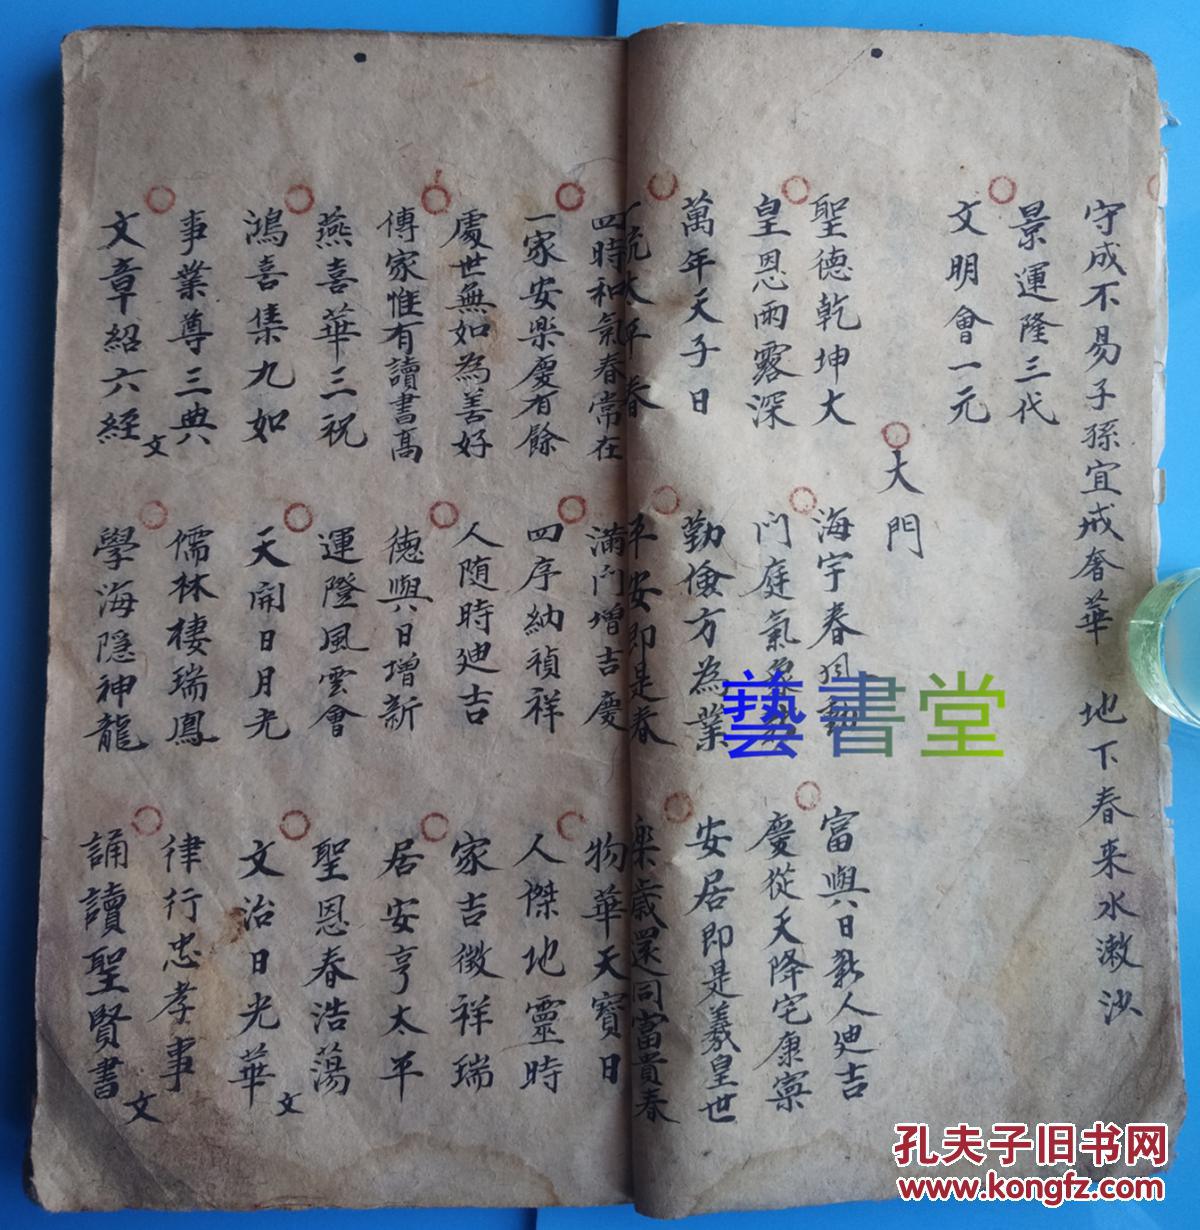 守成不易子孫宜戒奢華 地下春來水漱沙
景運隆三代
文明會一元
大門
聖德乾坤大
皇恩雨露深
萬年天子日
一統太平春
海宇春風動
門庭氣象
勤儉方為業
平安即是春
富與日新人廸吉
慶從天降宅康寧
安居即是羲皇世
樂歲還同富貴春
四時和氣春常在
一家安樂慶有餘
處世無如為善好
傳家惟有讀書高
燕喜華三祝
鴻喜集九如
事業尊三典
文章紹六經 文
滿門增吉慶
四序納禎祥
人随時廸吉
德與日增新
運隆風雲會
天開日月光
儒林棲瑞鳳
學海隱神龍
物華天寶日
人傑地靈時
家吉徵祥瑞
居安亨太平
聖恩春浩蕩
文治日光華 文
律行忠孝事
誦讀聖賢書 文
藝書堂
孔夫子旧书网
www.kongfz.com